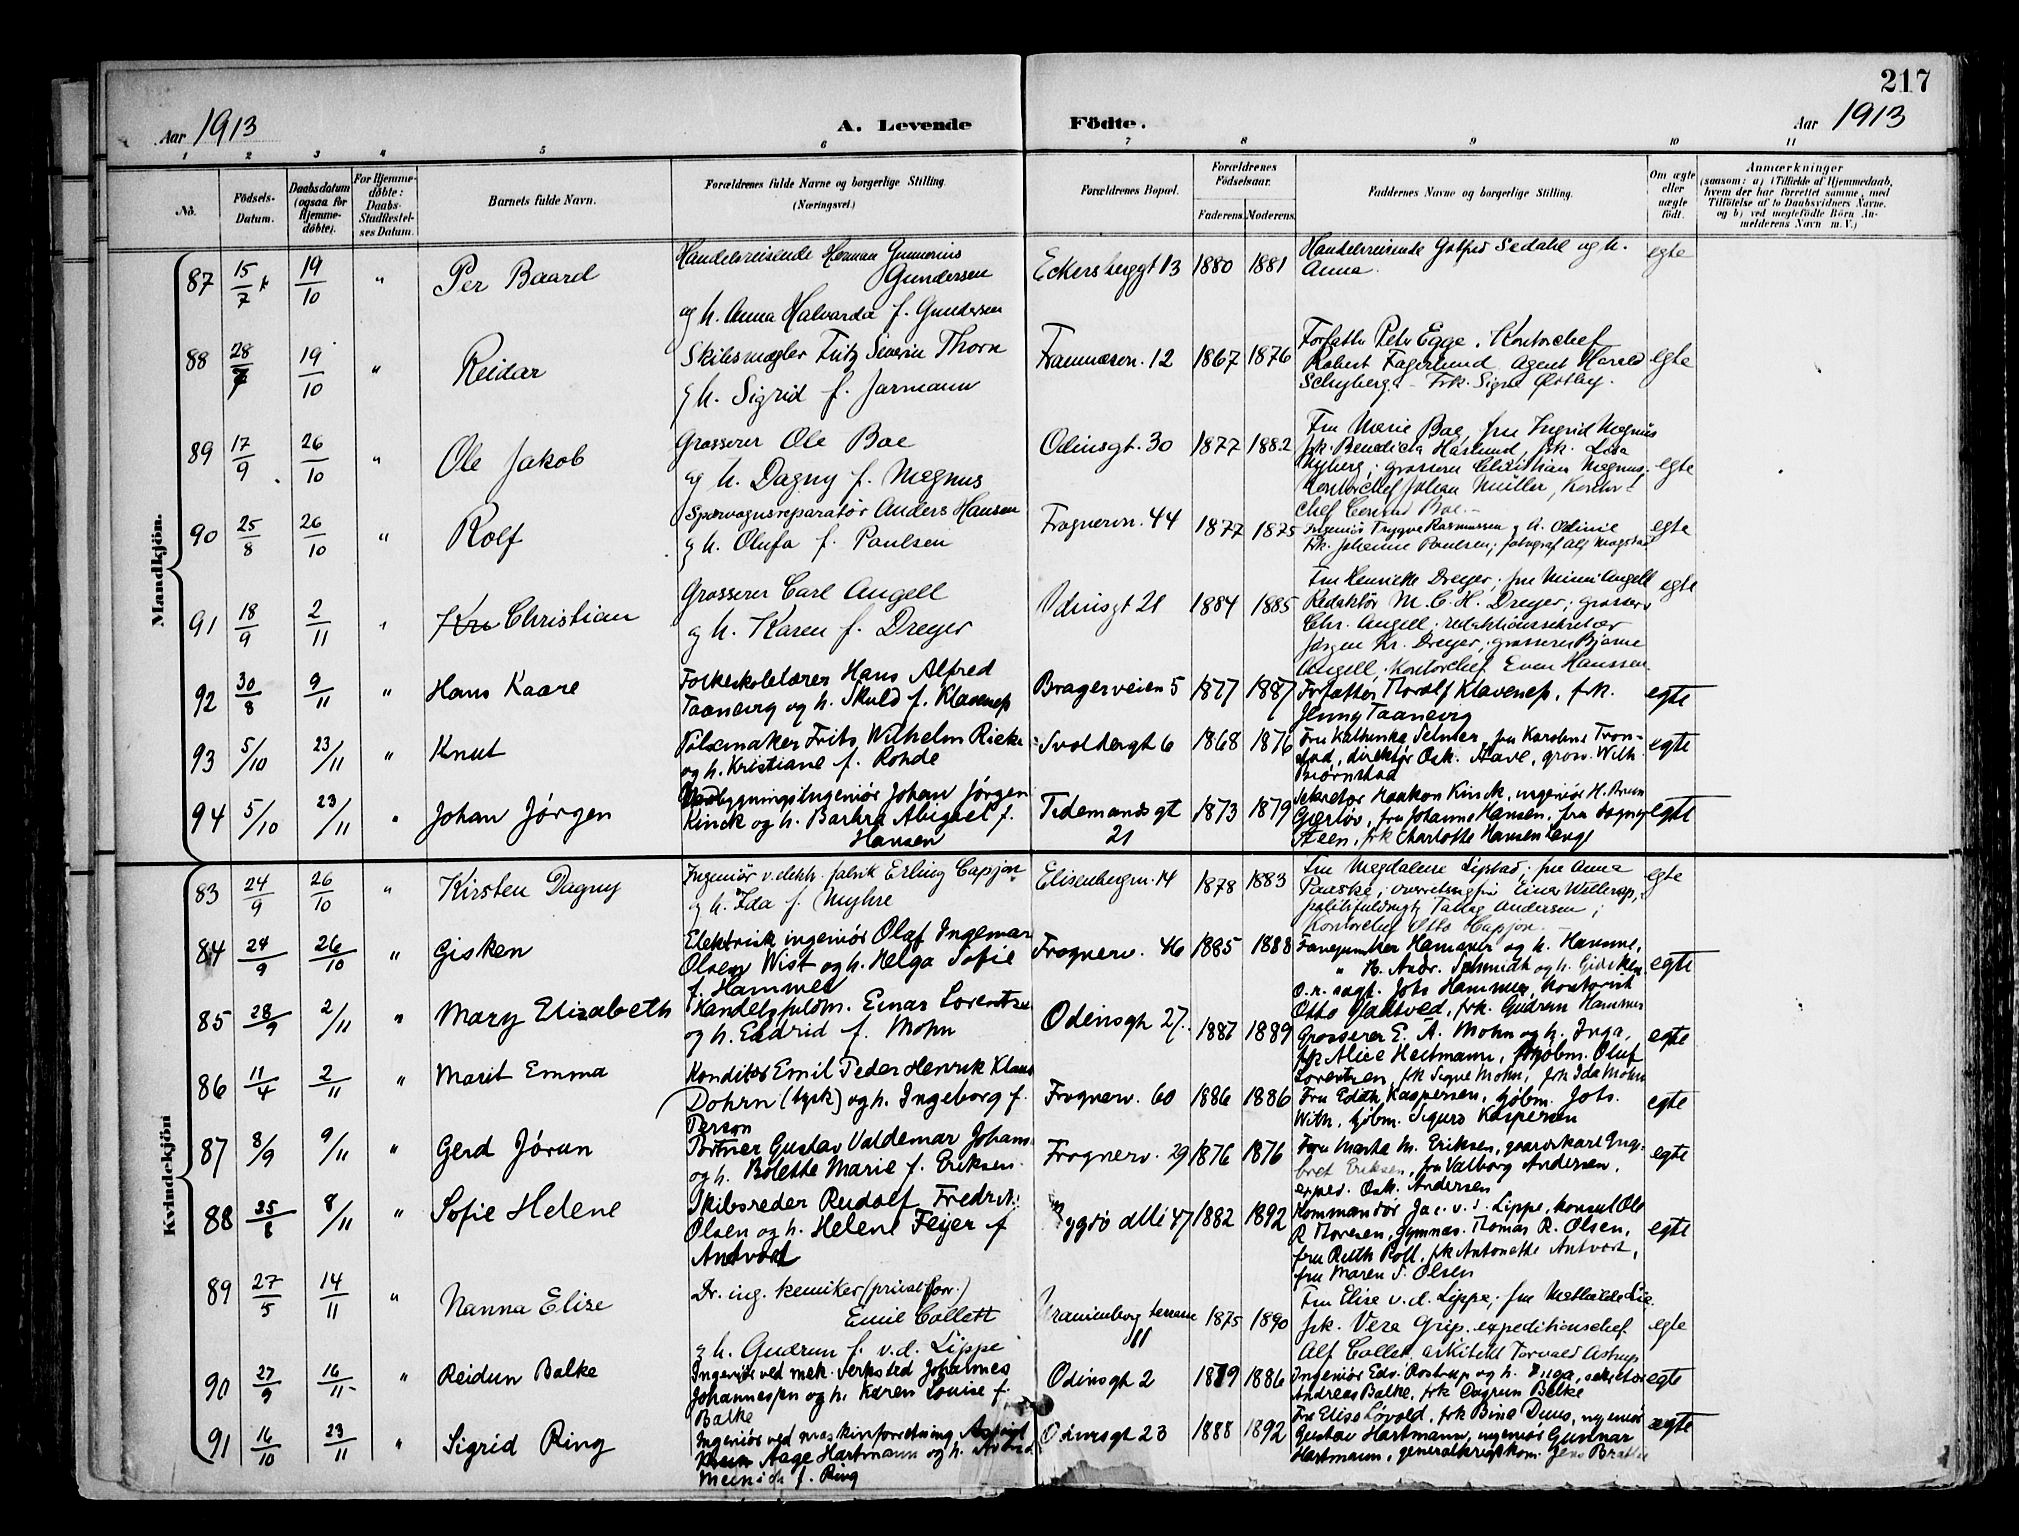 217
Aar 1913
A. Levende Födte.
Aar 1913
1 2 3 4 5 6 7 8 9 10 11
No.
Födsels-Datum.
Daabsdatum (ogsaa for Hjemmedöbte).
For Hjemmedöbte: Daabs-Stadfæstelses Datum.
Barnets fulde Navn.
Forældrenes fulde Navne og borgerlige Stilling.
(Næringsvei.)
Forældrenes Bopæl.
Forældrenes Födselsaar.
Faderens. Moderens.
Faddernes Navne og borgerlige Stilling.
Om ægte eller uægte födt.
Anmærkninger
(saasom: a) i Tilfælde af Hjemmedaab, hvem der har forrettet samme, med Tilföielse af to Daabsvidners Navne. og b) ved uegtefödte Börn Anmelderens Navn m. V.)
Mandkjön.
87 15/7 19/10 " Per Baard
Handelsreisende Herman Gunnerius
Gundersen
og h. Anna Halvarda f. Gundersen
Eckersberggt 13 1880 1881
Handelsreisende Gotfred Sedahl og h.
Anna.
egte
88 28/7 19/10 " Reidar
Skibsmægler Fritz Severin Thorn
g h. Sigrid f. Jarmann
Framnæsvn. 12 1867 1876
Forfatter Peter Egge, Kontorchef
Robert Fagerlund, Agent Harald
Schyberg. - Frk. Signe Østby.
egte
89 17/9 26/10 " Ole Jakob
Grosserer Ole Boe
og h. Dagny f. Magnus
Odinsgt. 30 1877 1882
Fru Marie Boe, fru Ingrid Magnus
frk. Benedicta Haslund, frk. Lisa
Nyberg; grosserer Christian Magnus.
Kontorchef Johan Müller, Kontor-
chef Conrad Boe. -
egte
90 25/8 26/10 " Rolf
Sporvognsreparatør Anders Hansen
g h. Olufa f. Paulsen
Frognervn. 44 1877 1875
Ingeniør Trygve Rasmussen g h. Odinie
frk. Johanne Paulsen; fotograf Alf
egte
91 18/9 2/11 " Kri Christian
Grosserer Carl Angell
g h. Karen f. Dreyer
Odinsgt 21 1884 1885
Fru Henriette Dreyer; fru Mimi Angell
Redaktør M. C. H. Dreyer; grosserer
Chr. Angell; redaktionssekretær
Jørgen Kr. Dreyer; grosserer Bjarne
Angell; Kontorchef Even Hanssen
egte
92 30/8 9/11 " Hans Kaare
Folkeskolelærer Hans Alfred
Taanevig og h. Skuld f. Klaveness
Bragesveien 5 1877 1887
Forfatter Thoralf Klaveness, frk.
Jenny Taanevig
egte
93 5/10 23/11 " Knut
Pølsemaker Frits Wilhelm Rieke
og h. Kristiane f. Rohde
Svoldergt 6 1868 1876
Fru Kathinka Selmer, fru Karoline Tron-
stad, direktør Osk. Aave, gros. Wilh.
Bjørnstad
egte
94 5/10 23/11 " Johan Jørgen
Johan Jørgen
Kinck og h. Barbra Abigael f.
Hansen
Tidemandsgt
21
1873 1879
Sekretær Haakon Kinck, ingeniør H. Brun
Gjerløv, fru Johanne Hansen, fru Dagny
Steen, frk Charlotte Hansen Lange
egte
Kvindekjön
83 24/9 26/10 " Kirsten Dagny
Ingeniør v. elektr. fabrik Erling Capjon
g h. Ida f. Myhre
Elisenbergvn. 14 1878 1883
Fru Magdalene Lipstad; fru Anna
Paaske; overretssagfører Einar Wetlerop,
politifuldmægtig Tallag Andersen;
Kontorchef Otto Capjon. -
egte
84 24/9 26/10 " Gisken
Elektrisk ingeniør Olaf Ingemar
Olsen Wist og h. Helga Sofie
f. Hammer
Frognerv. 46 1885 1888
Fanejunker Hammer og h. Hanna,
" B. Andr. Schmidt og h. Gisken
o.r. sagf. Johs Hammer, kontorist
Otto Vaktved, frk. Gudrun Hammer
egte
85 28/9 2/11 " Mary Elizabeth
Handelsfuldm. Einar Lorentzen
og h. Eldrid f. Mohn
Odinsgt 27. 1887 1889
Grosserer E. A. Mohn og h. Inga,
frk Alice Heitmann, skibsm. Oluf
Lorentzen, frk Signe Mohn, frk Ida Mohn
egte
86 11/4 2/11 " Marit Emma
Konditor Emil Peder Henrik Klaus
Dohrn (tysk) og h. Ingeborg f.
Person
Frognerv. 60 1886 1886
Fru Edith Kaspersen, kjøbm. Johs.
With, kjøbm. Sigurd Kaspersen
egte
87 8/9 9/11 " Gerd Jorun
Portner Gustav Valdemar Johans.
og h. Bolette Marie f. Eriksen.
Frognerv. 29 1876 1876
Fru Marta M. Eriksen, gaardskarl Ing-
bret Eriksen, fru Valborg Andersen,
exped. Osk. Andersen
egte
88 25/8 8/11 " Sofie Helene
Skibsreder Rudolf Fredrik
Olsen og h. Helene Fejer f
Antvort
Bygdø allé 47 1882 1892
Kommandør Jac. v. d. Lippe, konsul Ole
R Thoresen, gymnas. Thomas R. Olsen,
fru Ruth Poll, frk Antonette Antvort,
fru Maren S. Olsen
egte
89 27/5 14/11 " Nanna Elise
Dr. ing. kemiker (privat forr.)
Emil Collett
g h. Gudrun f. v. d. Lippe
Uranienborg terrasse
11
1875 1890
Fru Elise v. d. Lippe; fru Mathilde Lie
frk. Vera Grip. expeditionschef
Alf Collett, arkitekt Torvald Astrup
egte
90 27/9 16/11 " Reidun Balke
Ingeniør ved mek. Verksted Johannes
Johannessen og h. Karen Louise f.
Balke
Odinsgt 2 1879 1886
Ingeniør Edv. Rostrup og h. Helga, sekretær
Andreas Balke, frk Dagrun Balke
egte
91 16/10 23/11 " Sigrid Ring
Ingeniør ved maskinforretning
Aage Hartmann og h.
f. Ring
Odinsgt 23 1888 1892
Fru Elise Løvold, frk Bina Duus, ingeniør
Gustav Hartmann, ingeniør Gunnar
Hartmann, generalkrigskom. Jens Bratlie
ægte